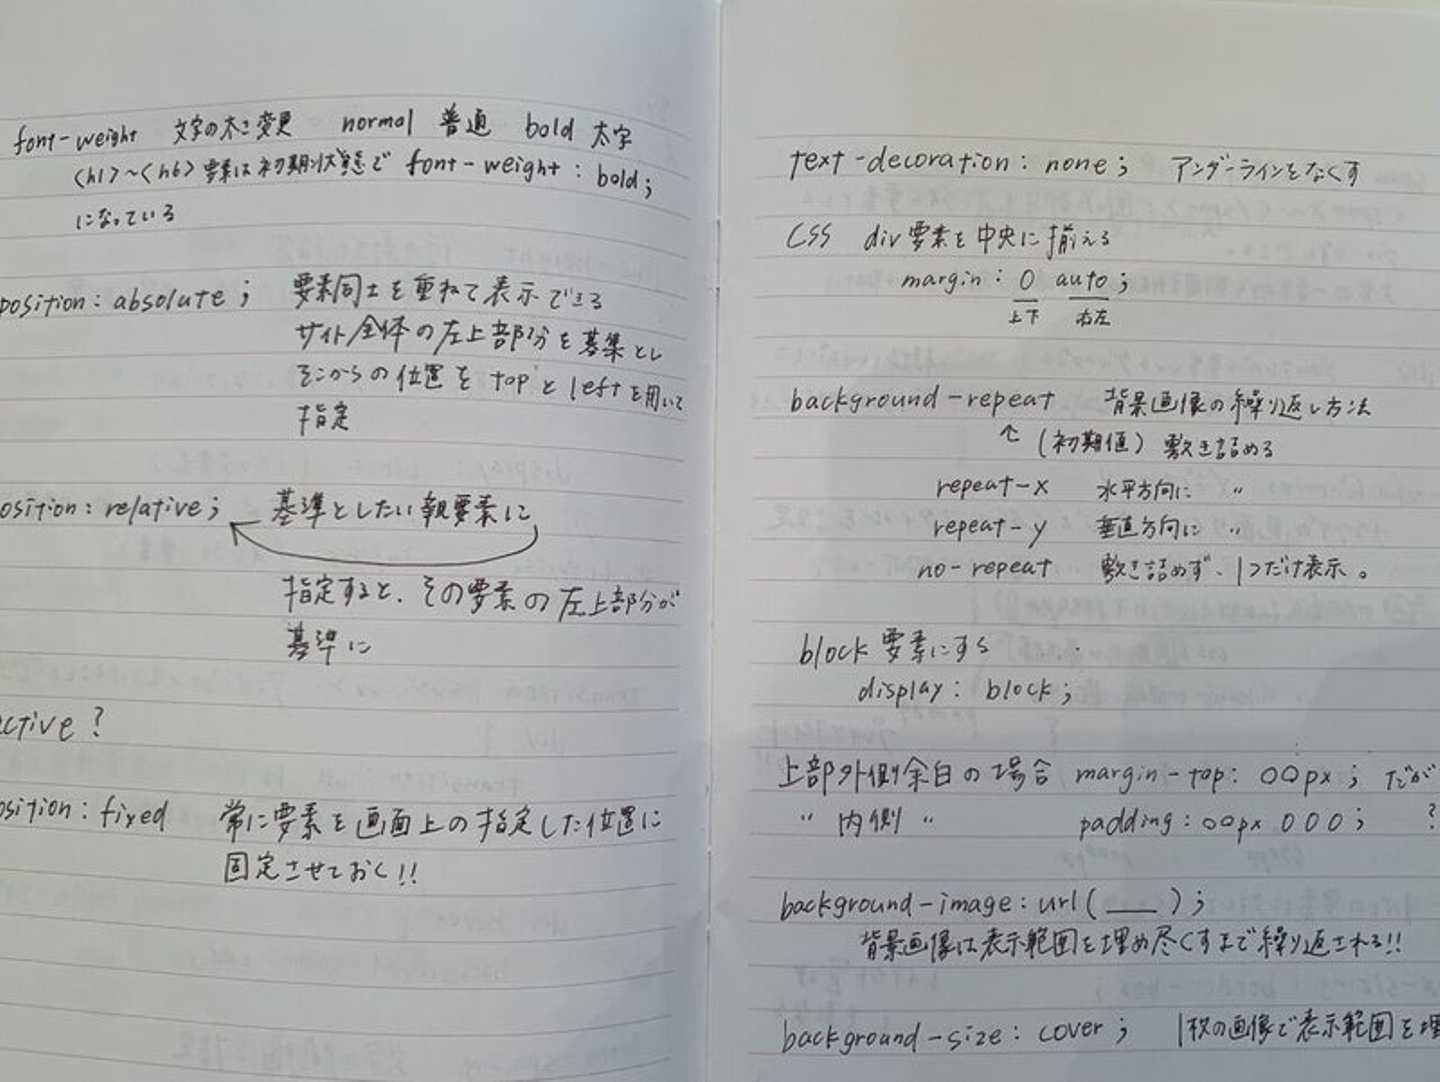 font-weight 文字の太さ変更 normal 普通 bold 太字
<h1>~<h6>要素は初期状態で font-weight : bold;
になっている
position : absolute ; 要素同士を重ねて表示できる
サイト全体の左上部分を基準とし
そこからの位置を top と left を用いて
指定
osition : relative ; 基準としたい親要素に
指定すると、その要素の左上部分が
基準に
active ?
osition : fixed 常に要素を画面上の指定した位置に
固定させておく!!
text-decoration : none ; アンダーラインをなくす
CSS div要素を中央に揃える
margin : 0 auto ;
上下 右左
background-repeat 背景画像の繰り返し方法
↑ (初期値) 敷き詰める
repeat-x 水平方向に 〃
repeat-y 垂直方向に 〃
no-repeat 敷き詰めず、1つだけ表示。
block 要素にする
display : block ;
上部外側余白の場合 margin-top : 〇〇px ; だが
〃 内側 〃 padding : 〇〇px 0 0 0 ; ?
background-image : url ( ___ ) ;
背景画像は表示範囲を埋め尽くすまで繰り返される!!
background-size : cover ; 1枚の画像で表示範囲を埋